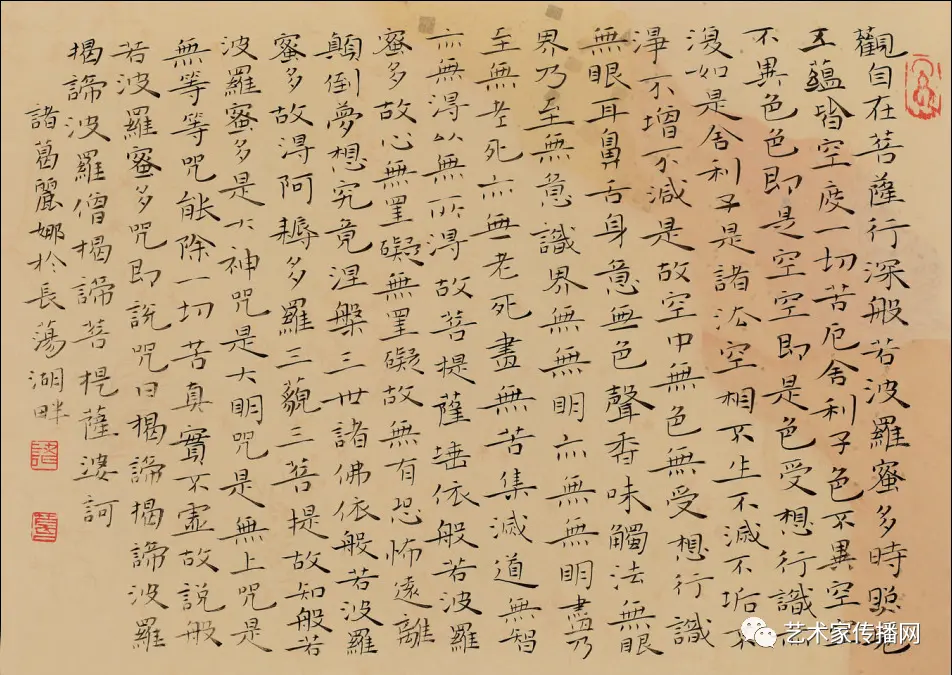 觀自在菩薩行深般若波羅蜜多時照見
五蘊皆空度一切苦厄舍利子色不異空空
不異色色即是空空即是色受想行識亦
復如是舍利子是諸法空相不生不滅不垢不
淨不增不減是故空中無色無受想行識
無眼耳鼻舌身意無色聲香味觸法無眼
界乃至無意識界無無明亦無無明盡乃
至無老死亦無老死盡無苦集滅道無智
亦無得以無所得故菩提薩埵依般若波羅
蜜多故心無罣礙無罣礙故無有恐怖遠離
顛倒夢想究竟涅槃三世諸佛依般若波羅
蜜多故得阿耨多羅三藐三菩提故知般若
波羅蜜多是大神咒是大明咒是無上咒是
無等等咒能除一切苦真實不虛故說般
若波羅蜜多咒即說咒曰揭諦揭諦波羅
揭諦波羅僧揭諦菩提薩婆訶
諸葛麗娜於長蕩湖畔
艺术家传播网